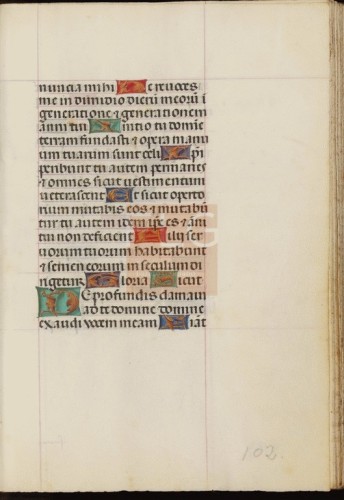 nuncia mihi Ne reuoces
me in dimidio dierũ meorũ ĩ
generatione & generationem
anni tui Initio tu domine
terram fundasti & opera manu
um tuarum sunt celi Ipsi
peribunt tu autem permanes
& omnes sicut uestimentum
ueterascent Et sicut operto
rium mutabis eos & mutabũ
tur tu autem idem ipse es & ani
tui non deficient Filij ser
uorum tuorum habitabunt
& semen eorum in seculum di
rigetur Gloria Sicut
De profundis clamaui
ad te domine domine
exaudi uocem meam Fiant
102.